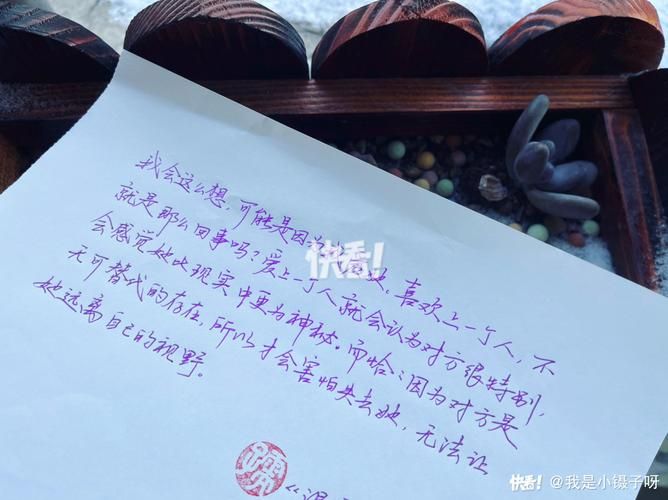 我会这么想,可能是因为 她,喜欢上一个人,不
就是那么回事吗?爱上一个人就会认为对方很特别,
会感觉她比现实中更为神秘。而恰恰因为对方是
无可替代的存在,所以才会害怕失去她,无法让
她远离自己的视野。
快看!
快看! @我是小镊子呀